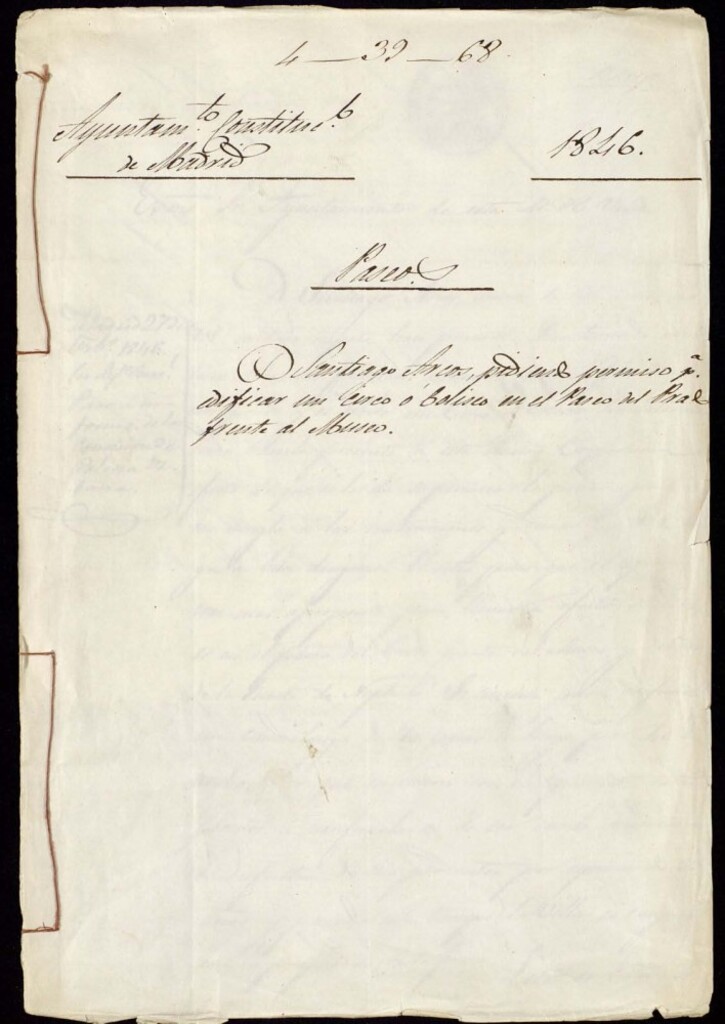 4 — 39 — 68.
Ayuntam.to Constituc.l
de Madrid
1846.
Paseos
D Santiago Arcos, pidiendo permiso p.a
edificar un Circo ó Coliseo en el Paseo del Prado
frente al Museo.